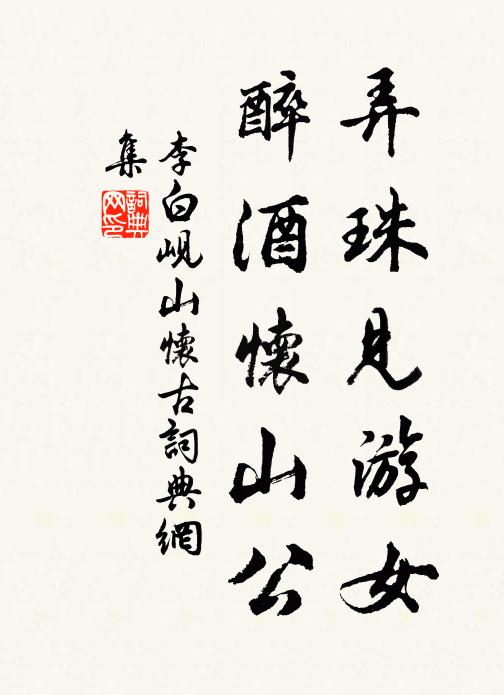 弄珠見游女
醉酒懷山公
李白峴山懷古詞典網
集
詞典
网印